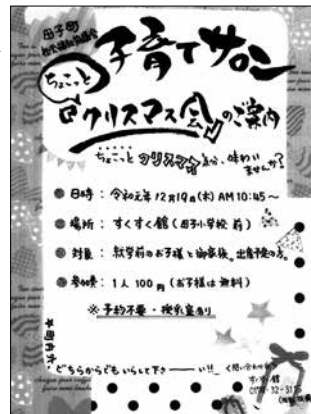 子育てサロン
ちょこっと
クリスマス会のご案内
ちょこっとクリスマス気分、味わいませんか?
日時：令和元年12月19日(木)AM10:45～
場所：すくすく館(母子小学校 前)
対象：就学前のお子様と御家族。出産予定の方。
参加費：1人 100円(お子様は無料)
※予約不要・授乳室あり
どちらからでもいらして下さーーい!!
<問い合わせ先>
すくすく館